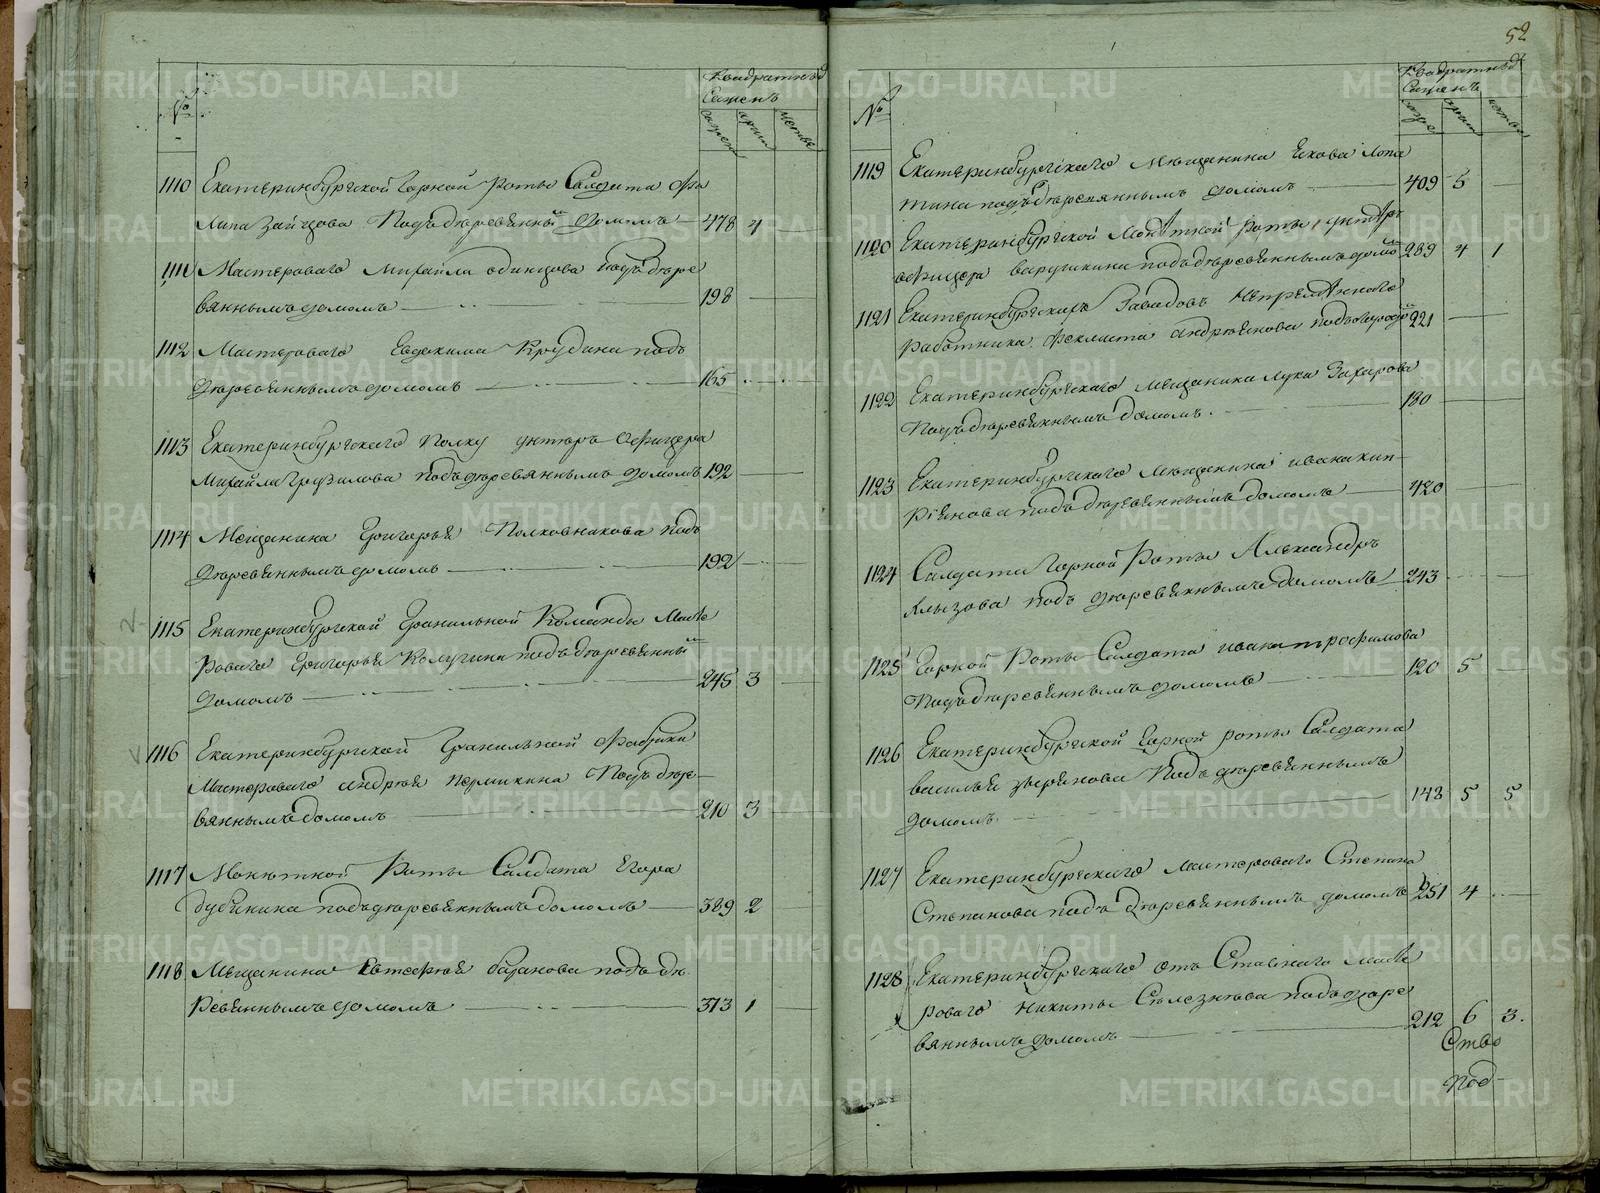 52
№
Квадратныхъ
Сажень
сажен
арши
четве
1110 Екатеринбургской Горной Роты Салдата Фи
липа Зайцова Подъ деревянный домомъ 478 4
1111 Мастероваго Михайла Одинцова подъ дере
вяннымъ домомъ 198
1112 Мастероваго Евдокима Крудина подъ
деревяннымъ домомъ 165
1113 Екатеринбургскаго Полку унтеръ Офицера
Михайла Грузилова подъ деревяннымъ домомъ 192
1114 Мещанина Григорья Полковникова подъ
деревяннымъ домомъ 192
1115 Екатеринбургской Гранильной Команды Масте
роваго Григорья Калугина подъ деревянный
домомъ 245 3
1116 Екатеринбургской Гранильной Фабрики
Мастероваго Андрея Пермикина Подъ дере
вяннымъ домомъ 210 3
1117 Монетной Роты Салдата Егора
Дубинина подъ деревяннымъ домомъ 389 2
1118 Мещанина Евтефея Баранова подъ де
ревяннымъ домомъ 313 1
№
Квадратныхъ
Сажень
саже
арши
четве
1119 Екатеринбургскаго Мещанина Якова Лопа
тина подъ деревяннымъ домомъ 409 5
1120 Екатеринбургской Монетной Роты унтеръ
офицера Варушкина подъ деревяннымъ домо 289 4 1
1121 Екатеринбургскихъ Заводовъ Непременнаго
работника Феклиста Андреянова подъ 221
1122 Екатеринбургскаго мещанина Луки Захарова
Подъ деревяннымъ домомъ 180
1123 Екатеринбургскаго Мещанина Ивана Кип
риянова подъ деревяннымъ домомъ 420
1124 Салдата Горной Роты Александръ
Алызова подъ деревяннымъ домомъ 243
1125 Горной Роты Салдата Ивана Трофимова
Подъ деревяннымъ домомъ 120 5
1126 Екатеринбургской Горной роты Салдата
Василья Зверинова Подъ деревяннымъ
домомъ 143 5 5
1127 Екатеринбургскаго Мастероваго Степана
Степанова подъ деревяннымъ домомъ 251 4
1128 Екатеринбургскаго отъ Ставнаго Масте
роваго Никиты Селезнева подъ дере
вяннымъ домомъ 212 6 3
Ство
под
METRIKI.GASO-URAL.RU